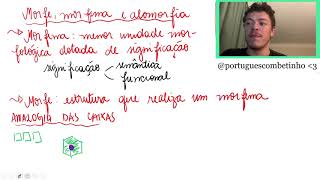 Morfe, morfema e alomorfia
Morfema: menor unidade mor-
fológica dotada de significação
significação
semântica
funcional
Morfe: estrutura que realiza um morfema
ANALOGIA DAS CAIXAS
@portuguescombetinho <3